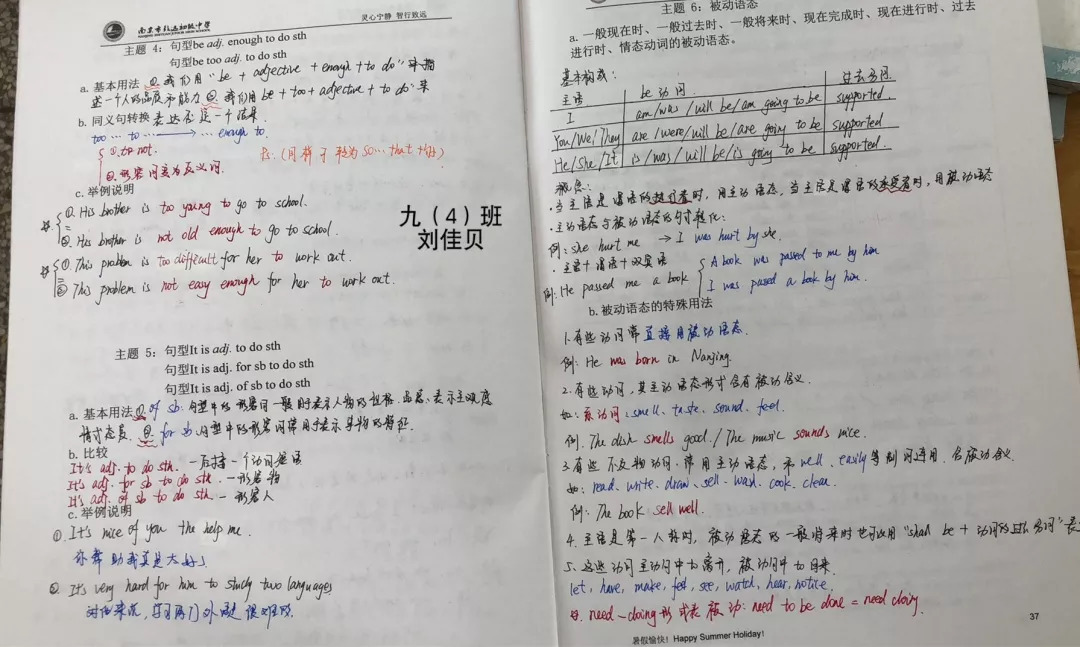 南京市钟英初级中学
灵心宁静 智行致远
主题 4：句型be adj. enough to do sth
句型be too adj. to do sth
a. 基本用法 ①. 我们用“be + adjective + enough + to do”来描
述一个人的品质和能力 ②. 我们用be + too + adjective + to do 来
b. 同义句转换 表达否定一个结果.
too … to … → … enough to.
①. to not.
②. 形容词变为反义词.
c. 举例说明
①. His brother is too young to go to school.
=
②. His brother is not old enough to go to school.
①. This problem is too difficult for her to work out.
=
② This problem is not easy enough for her to work out.
九（4）班
刘佳贝
主题 5：句型It is adj. to do sth
句型It is adj. for sb to do sth
句型It is adj. of sb to do sth
a. 基本用法 ①. of sb. 句型中的形容词一般用于表示人物的性格、品德、表示主观感
情或态度. ②. for sb 句型中的形容词常用于表示事物的特征.
b. 比较
It's adj. to do sth. — 后接一个动词短语
It's adj. for sb to do sth. — 形容物
It's adj. of sb to do sth. — 形容人
c. 举例说明
① It's nice of you the help me.
你帮助我真是太好了
② It's very hard for him to study two languages
对他来说，学习两门外语是很难的.
主题 6：被动语态
a. 一般现在时、一般过去时、一般将来时、现在完成时、现在进行时、过去
进行时、情态动词的被动语态。
基本构成：
主语 be 动词 过去分词
I am/was/will be/am going to be supported.
You/We/They are/were/will be/are going to be supported
He/She/It is/was/will be/is going to be supported.
概念：
·当主语是谓语的执行者时，用主动语态，当主语是谓语的承受者时，用被动语态
·主动语态与被动语态的句式转化：
例：she hurt me → I was hurt by she.
·主语+谓语+双宾语
例: He passed me a book
A book was passed to me by him
I was passed a book by him.
b. 被动语态的特殊用法
1.有些动词常直接用被动语态.
例: He was born in Nanjing.
2.有些动词，其主动语态形式含有被动含义.
如：系动词：smell、taste、sound、feel.
例. The dish smells good. / The music sounds nice.
3.有些不及物动词，常用主动语态，和well、easily等副词连用，含被动含义
如：read、write、draw、sell、wash、cook、clean.
例: The book sell well.
4. 主语是第一人称时，被动语态的一般将来时也可以用“shall be + 动词的过去分词”表
5. 这些动词主动句中to离开，被动句中to回来
let、have、make、feel、see、watch、hear、notice
need - doing 形式表被动: need to be done = need doing.
37
暑假愉快！Happy Summer Holiday！